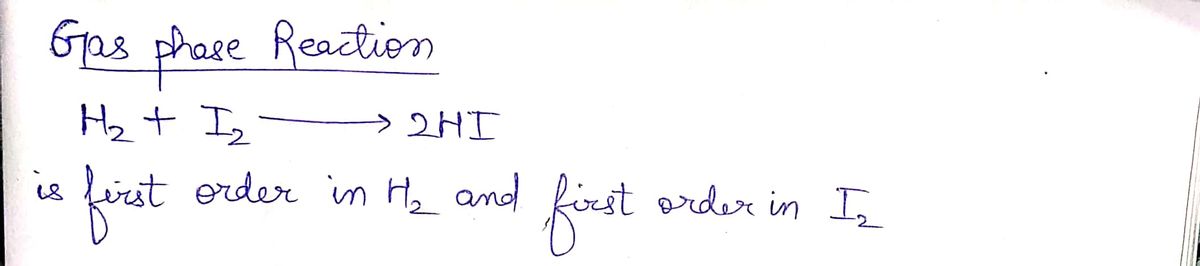 Gas phase Reaction
H₂ + I₂ ⟶ 2HI
is first order in H₂ and first order in I₂